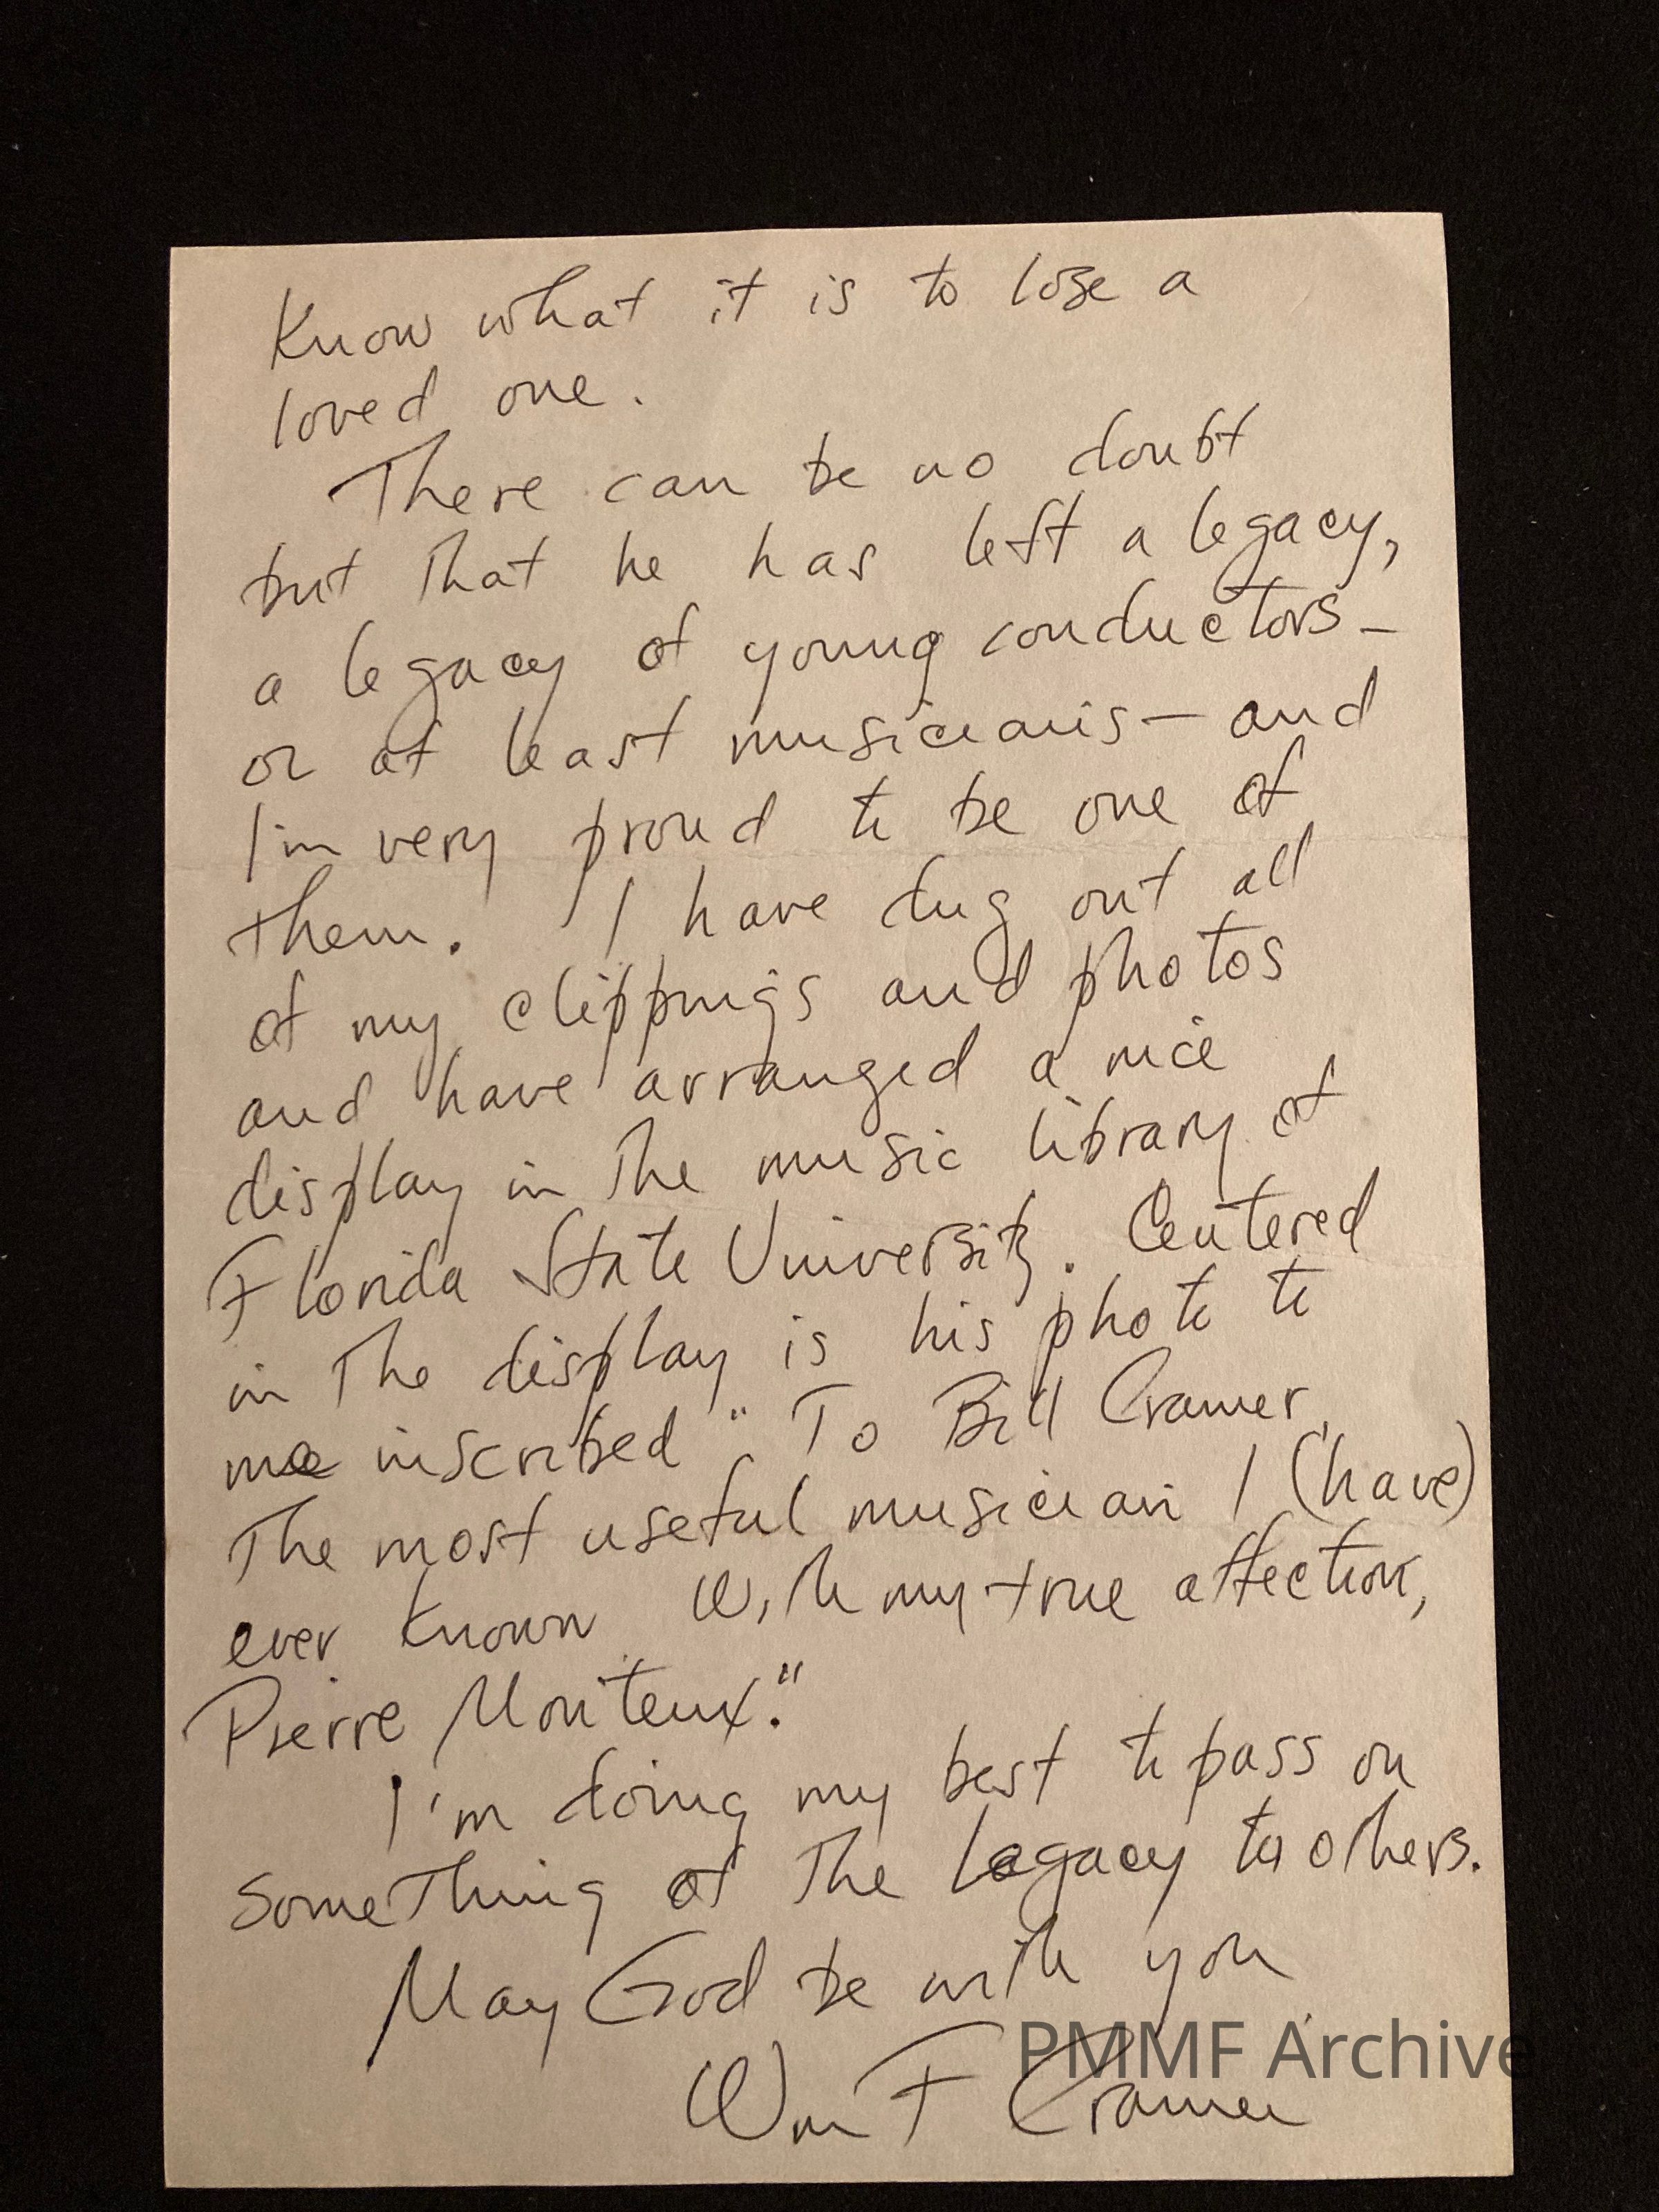 Know what it is to lose a
loved one.
There can be no doubt
but that he has left a legacy,
a legacy of young conductors—
or at least musicians—and
I'm very proud to be one of
them. I have dug out all
of my clippings and photos
and have arranged a nice
display in the music library at
Florida State University. Centered
in the display is his photo to
me inscribed "To Bill Cramer,
The most useful musician I (have)
ever known. With my true affection,
Pierre Monteux."
I'm doing my best to pass on
something of the legacy to others.
May God be with you
PMMF Archive
Wm F Cramer